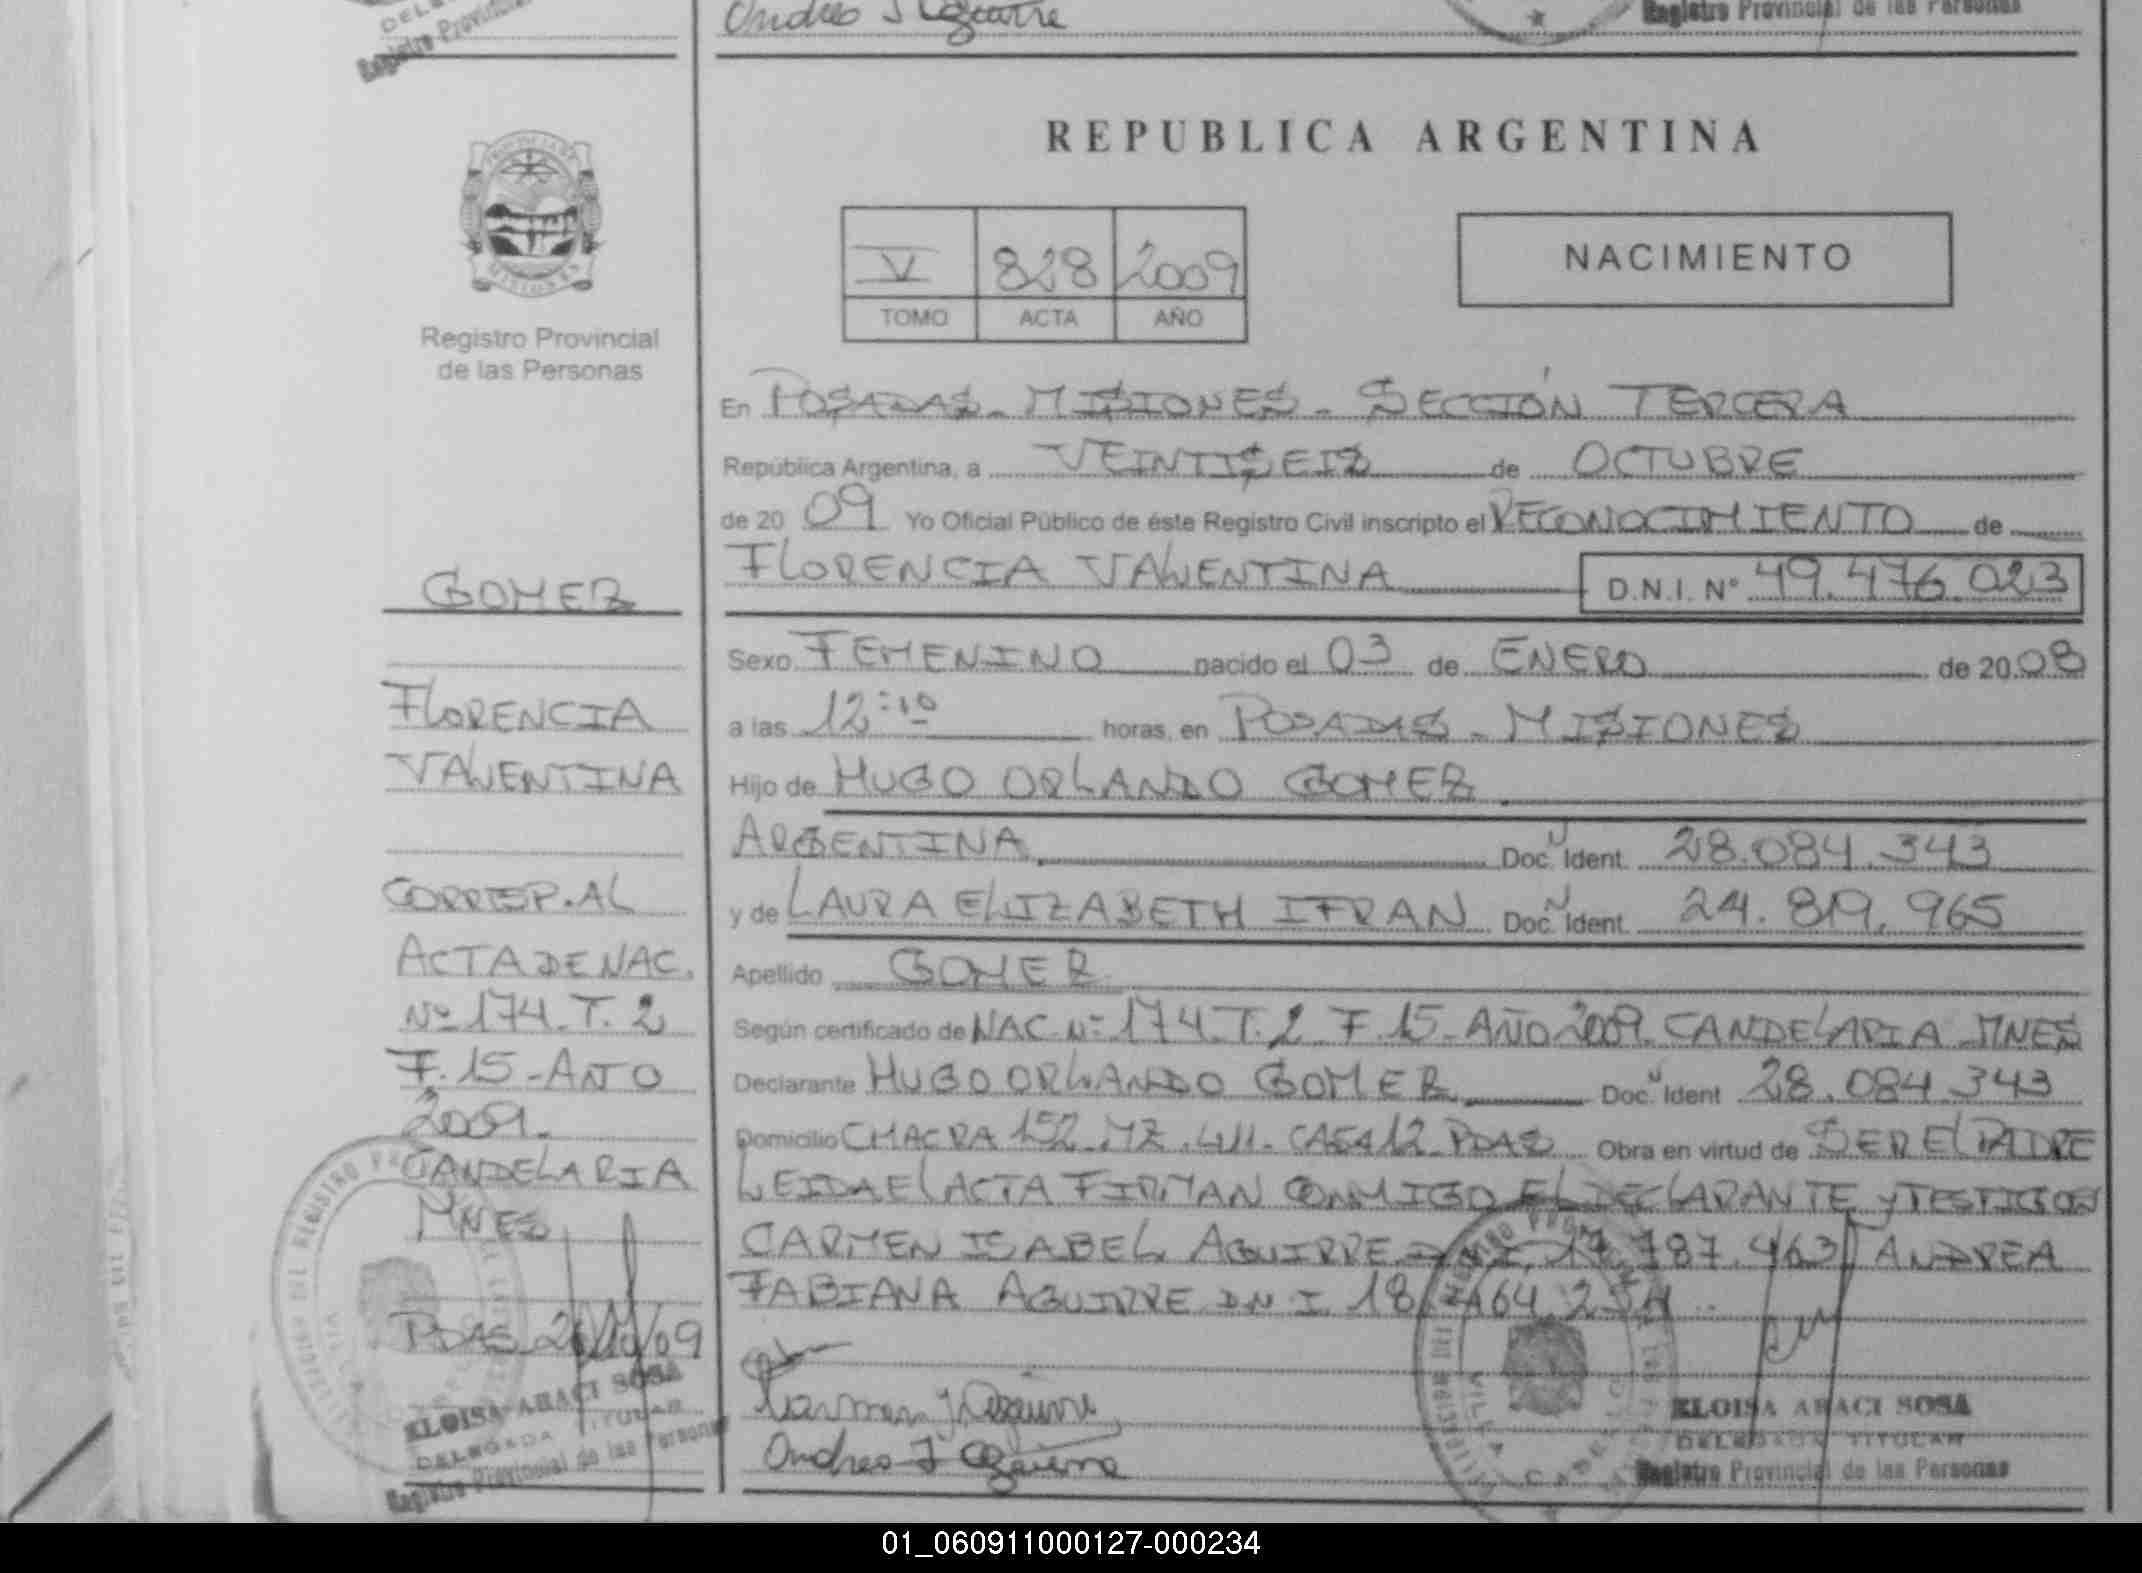 Registro Provincial de las Personas
REPUBLICA ARGENTINA
Registro Provincial
de las Personas
V 828 2009
TOMO ACTA AÑO
NACIMIENTO
En POSADAS - MISIONES - SECCIÓN TERCERA
República Argentina, a VEINTISEIS de OCTUBRE
de 20 09 Yo Oficial Público de éste Registro Civil inscripto el RECONOCIMIENTO de
FLORENCIA VALENTINA D.N.I. Nº 49.476.023
Sexo FEMENINO nacido el 03 de ENERO de 20 08
a las 12:10 horas, en POSADAS - MISIONES
Hijo de HUGO ORLANDO GOMEZ
ARGENTINA Doc. Ident. 28.084.343
y de LAURA ELIZABETH IFRAN Doc. Ident. 24.819.965
Apellido GOMEZ
Según certificado de NAC Nº 174 T. 2 F. 15 - AÑO 2009. CANDELARIA MNES
Declarante HUGO ORLANDO GOMEZ Doc. Ident 28.084.343
Domicilio CHACRA 152 MZ. CASA 12 PDAS Obra en virtud de SER EL PADRE
LEIDA EL ACTA FIRMAN CONMIGO EL DECLARANTE Y TESTIGOS
CARMEN ISABEL AGUIRRE 17.787.463 ANDREA
FABIANA AGUIRRE DNI 18
GOMEZ
FLORENCIA
VALENTINA
CORRESP. AL
ACTA DE NAC.
Nº 174 T. 2
F. 15 - AÑO
2009.
CANDELARIA
MNES
PDAS 26/10/09
ELOISA ARACI SOSA
DELEGADA TITULAR
Registro Provincial de las Personas
ELOISA ARACI SOSA
DELEGADA TITULAR
Registro Provincial de las Personas
01_060911000127-000234